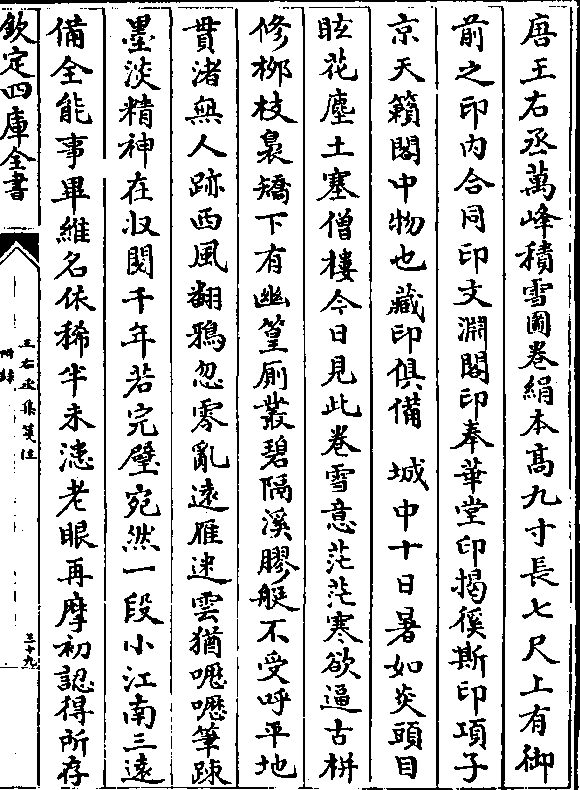 唐王右丞萬峰積雪圖卷絹本高九寸長七尺上有御
前之印內合同印文淵閣印奉華堂印揭徯斯印項子
京天籟閣中物也藏印俱備　城中十日暑如炎頭目
眩花塵土塞僧樓今日見此卷雪意茫茫寒欲逼古栟
修栁枝裊矯下有幽篁厠叢碧隔溪膠艇不受呼平地
貫渚無人跡西風翻鴉忽零亂遠雁迷雲猶嚦嚦筆踈
墨淡精神在収閱千年若完璧宛然一段小江南三遠
備全能事畢維名依稀半未漶老眼再摩初認得所存
欽定四庫全書
王右丞集箋注
附錄
三十九